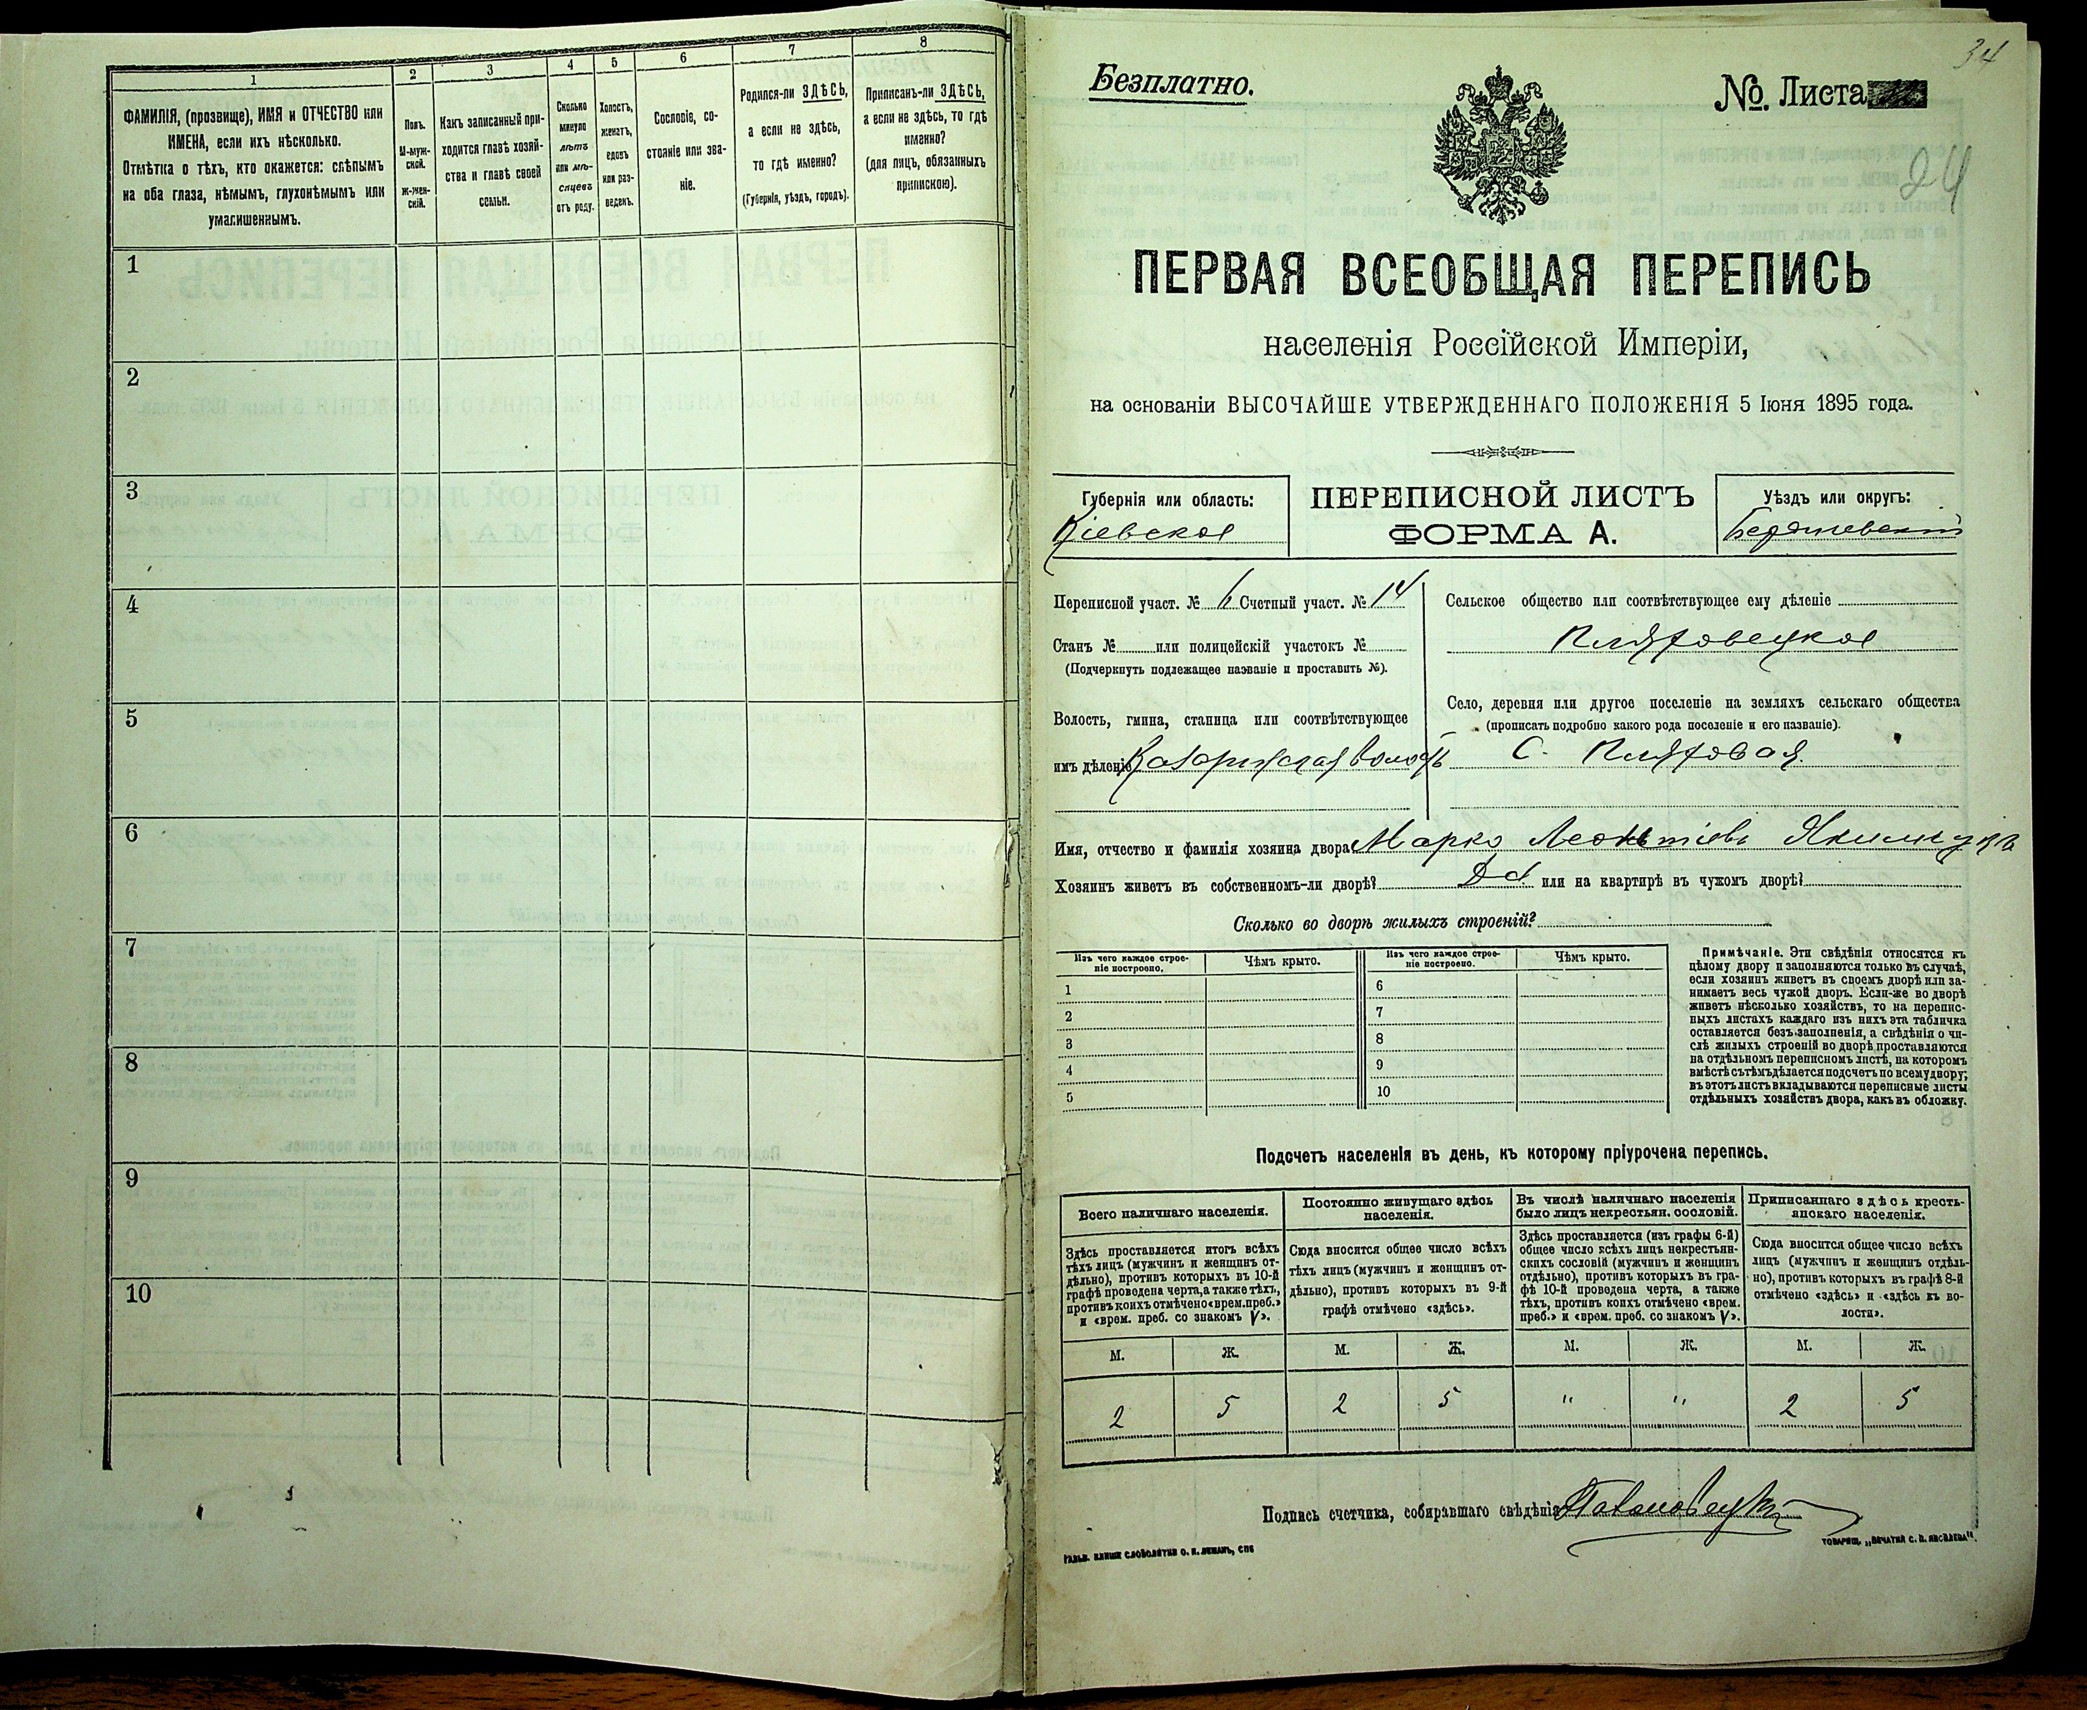 1
ФАМИЛІЯ, (прозвище), ИМЯ и ОТЧЕСТВО или
ИМЕНА, если ихъ нѣсколько.
Отмѣтка о тѣхъ, кто окажется: слѣпымъ
на оба глаза, нѣмымъ, глухонѣмымъ или
умалишеннымъ.
2
Полъ.
М-муж-
ской.
Ж-жен-
скій.
3
Какъ записанный при-
ходится главѣ хозяй-
ства и главѣ своей
семьи.
4
Сколько
минуло
лѣтъ
или мѣ-
сяцевъ
отъ роду.
5
Холостъ,
женатъ,
вдовъ
или раз-
веденъ.
6
Сословіе, со-
стояніе или зва-
ніе.
7
Родился-ли ЗДѢСЬ,
а если не здѣсь,
то гдѣ именно?
(Губернія, уѣздъ, городъ).
8
Приписанъ-ли ЗДѢСЬ,
а если не здѣсь, то гдѣ
именно?
(для лицъ, обязанныхъ
припискою).
1
2
3
4
5
6
7
8
9
10
34
Безплатно.
№. Листа
24
ПЕРВАЯ ВСЕОБЩАЯ ПЕРЕПИСЬ
населенія Россійской Имперіи,
на основаніи ВЫСОЧАЙШЕ УТВЕРЖДЕННАГО ПОЛОЖЕНІЯ 5 Іюня 1895 года.
Губернія или область:
Кіевская
ПЕРЕПИСНОЙ ЛИСТЪ
ФОРМА А.
Уѣздъ или округъ:
Бердичевскій
Переписной участ. № 6 Счетный участ. № 14
Станъ № или полицейскій участокъ №
(Подчеркнуть подлежащее названіе и проставить №).
Волость, гмина, станица или соотвѣтствующее
имъ дѣленіе
волость
Сельское общество или соотвѣтствующее ему дѣленіе
Пляховецкое
Село, деревня или другое поселеніе на земляхъ сельскаго общества
(прописать подробно какого рода поселеніе и его названіе).
С. Пляховая
Имя, отчество и фамилія хозяина двора Марко Леонтіевъ
Хозяинъ живетъ въ собственномъ-ли дворѣ? Да. или на квартирѣ въ чужомъ дворѣ?
Сколько во дворѣ жилыхъ строеній?
Изъ чего каждое строе-
ніе построено.
Чѣмъ крыто.
Изъ чего каждое строе-
ніе построено.
Чѣмъ крыто.
1
2
3
4
5
6
7
8
9
10
Примѣчаніе. Эти свѣдѣнія относятся къ
цѣлому двору и заполняются только въ случаѣ,
если хозяинъ живетъ въ своемъ дворѣ или за-
нимаетъ весь чужой дворъ. Если-же во дворѣ
живетъ нѣсколько хозяйствъ, то на перепис-
ныхъ листахъ каждаго изъ нихъ эта табличка
оставляется безъ заполненія, а свѣдѣнія о чи-
слѣ жилыхъ строеній во дворѣ проставляются
на отдѣльномъ переписномъ листѣ, на которомъ
вмѣстѣ съ тѣмъ дѣлается подсчетъ по всему двору;
въ этотъ листъ вкладываются переписные листы
отдѣльныхъ хозяйствъ двора, какъ въ обложку.
Подсчетъ населенія въ день, къ которому пріурочена перепись.
Всего наличнаго населенія.
Здѣсь проставляется итогъ всѣхъ
тѣхъ лицъ (мужчинъ и женщинъ от-
дѣльно), противъ которыхъ въ 10-й
графѣ проведена черта, а также тѣхъ,
противъ коихъ отмѣчено «врем. преб.»
и «врем. преб. со знакомъ V».
Постоянно живущаго здѣсь
населенія.
Сюда вносится общее число всѣхъ
тѣхъ лицъ (мужчинъ и женщинъ от-
дѣльно), противъ которыхъ въ 9-й
графѣ отмѣчено «здѣсь».
Въ числѣ наличнаго населенія
было лицъ некрестьян. сословій.
Здѣсь проставляется (изъ графы 6-й)
общее число всѣхъ лицъ некрестьян-
скихъ сословій (мужчинъ и женщинъ
отдѣльно), противъ которыхъ въ гра-
фѣ 10-й проведена черта, а также
тѣхъ, противъ коихъ отмѣчено «врем.
преб.» и «врем. преб. со знакомъ V».
Приписаннаго здѣсь кресть-
янскаго населенія.
Сюда вносится общее число всѣхъ
лицъ (мужчинъ и женщинъ отдѣль-
но), противъ которыхъ въ графѣ 8-й
отмѣчено «здѣсь» и «здѣсь къ во-
лости».
М. Ж. М. Ж. М. Ж. М. Ж.
2 5 2 5 " " 2 5
Подпись счетчика, собиравшаго свѣдѣнія
ГАЛЬВ. КЛИШИ СЛОВОЛИТНИ О. И. ЛЕМАНЪ, СПБ
ТОВАРИЩ. „ПЕЧАТНЯ С. П. ЯКОВЛЕВА".